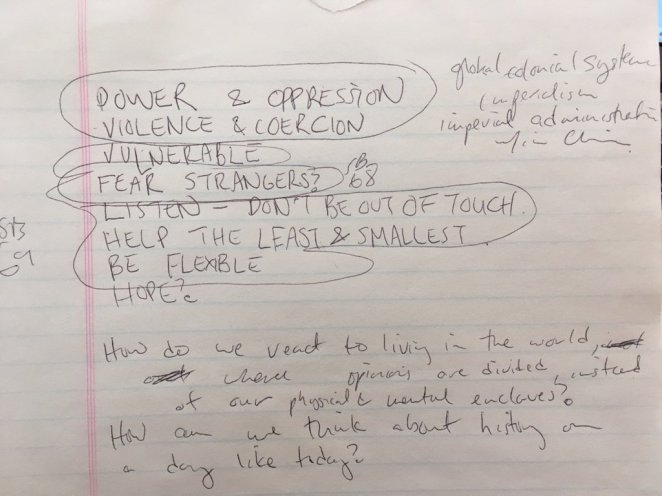 global colonial system
imperialism
imperial administration
w/in China
POWER & OPPRESSION
VIOLENCE & COERCION
VULNERABLE
FEAR STRANGERS?
68
LISTEN – DON'T BE OUT OF TOUCH.
HELP THE LEAST & SMALLEST
BE FLEXIBLE
HOPE?
How do we react to living in the world,
where opinions are divided, instead
of our physical & mental enclaves?
How can we think about history on
a day like today?